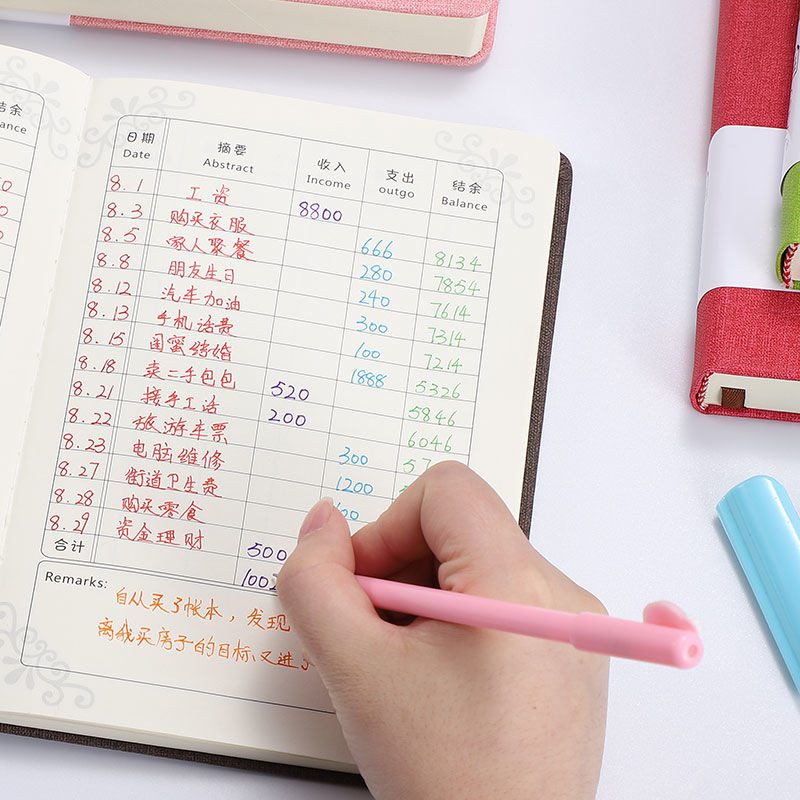 结余
lance
日期 摘要 收入 支出 结余
Date Abstract Income outgo Balance
8.1 工资 8800
8.3 购买衣服 666 8134
8.5 家人聚餐 280 7854
8.8 朋友生日 240 7614
8.12 汽车加油 300 7314
8.13 手机话费 100 7214
8.15 闺蜜结婚 1888 5326
8.18 卖二手包包 520 5846
8.21 接手工活 200 6046
8.22 旅游车票 300
8.23 电脑维修 1200
8.27 街道卫生费
8.28 购买零食
8.29 资金理财 500
合计
Remarks:
自从买了帐本，发现
离我买房子的目标又进了